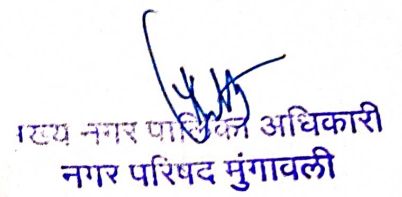 मुख्य नगर पालिका अधिकारी
नगर परिषद मुंगावली